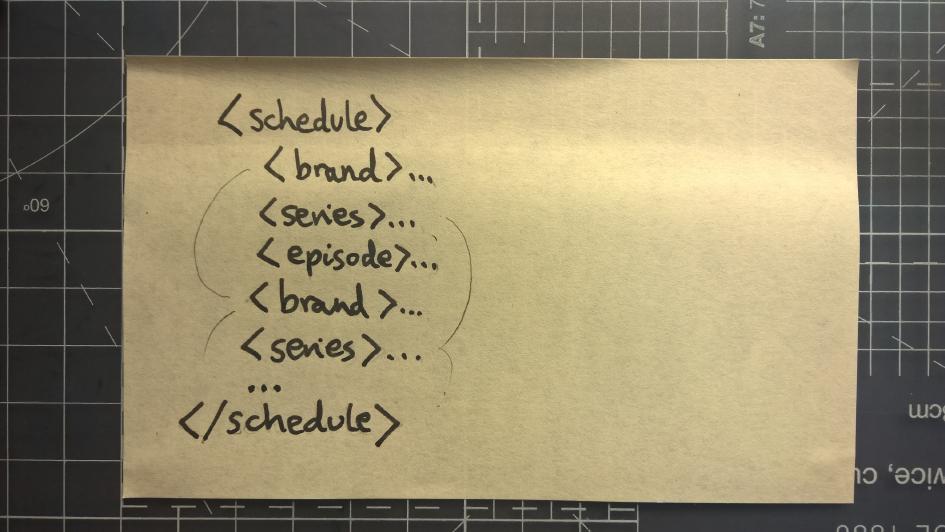 <schedule>
<brand>...
<series>...
<episode>...
<brand>...
<series>...
...
</schedule>
A7:7
60°